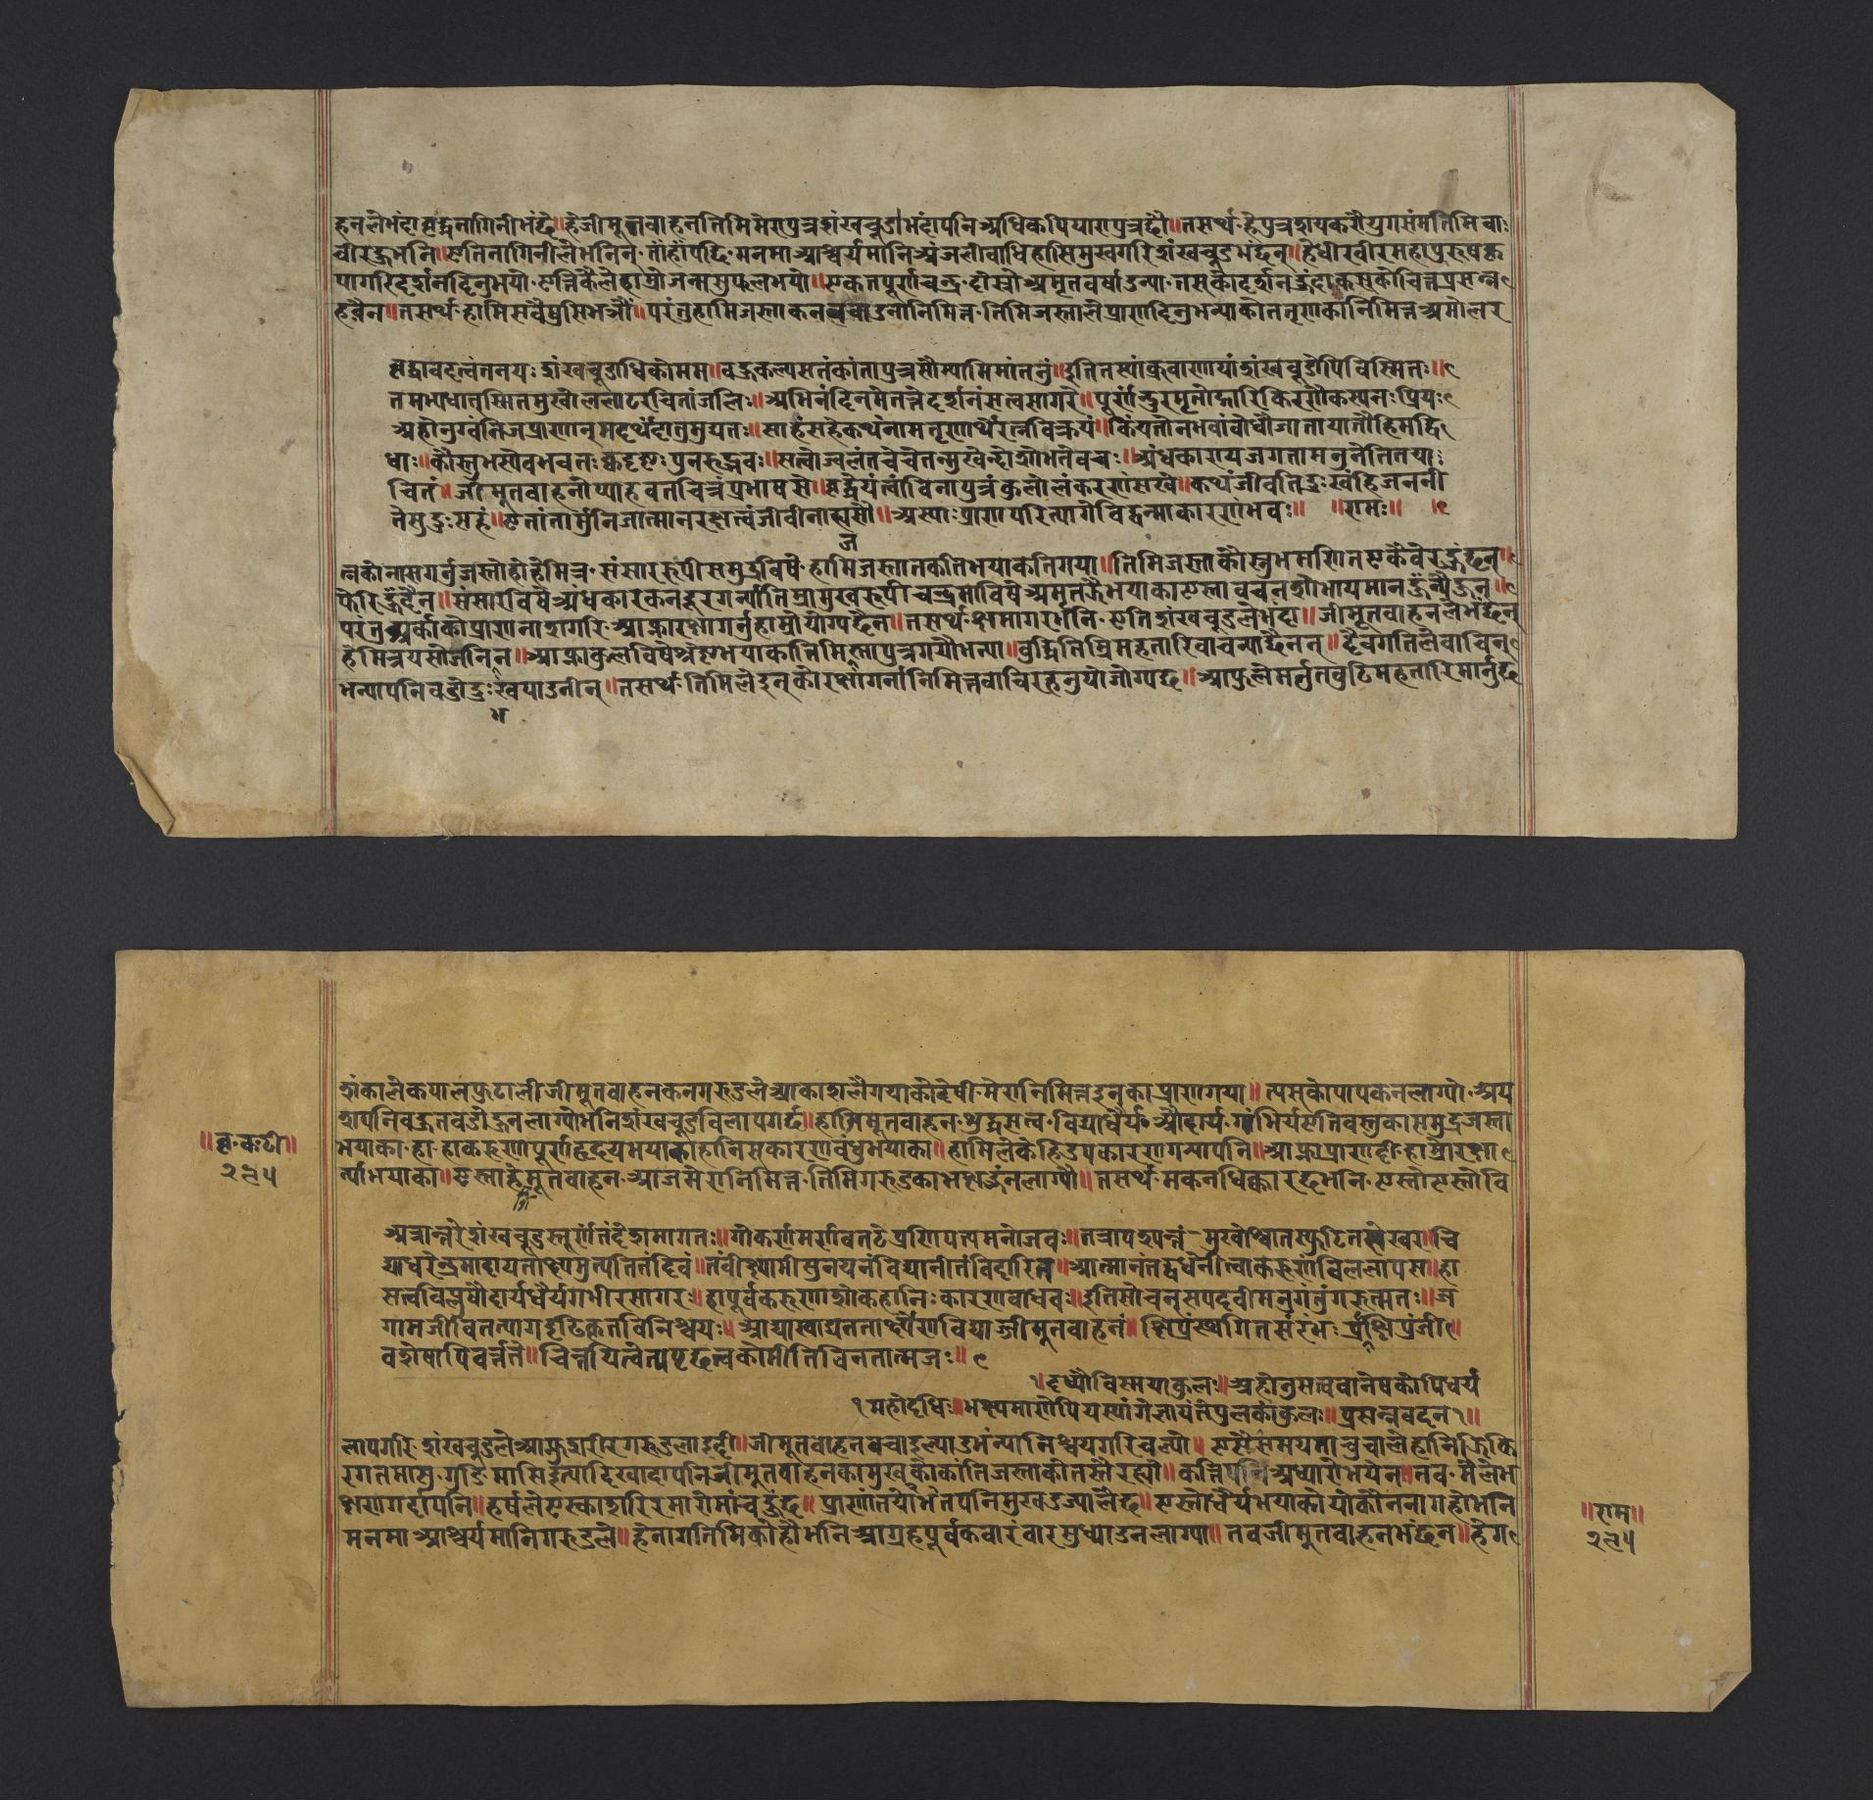 हनलेभंदा वृद्धनागिनीभंछे॥हेजीमूतवाहनतिमिमेरापुत्रशंखचूडाभंदापनिअधिकपियारापुत्रहौ॥तसर्थ·हेपुत्रशयकरौयुगसंमतिमिबा
चीरहूभनि॥एतिनागिनीलेभनिन·ताँहाँपछि·मनमाआश्चर्यमानिअंजलीबाधिहासिमुखगरिशंखचूडभंछन्॥हेधीरवीरमहापुरुषकृ
पागरिदर्शनदिनुभयो·एत्तिकैलेहाम्रोजन्मसुफलभयो॥एकतपूर्णचन्द्र·दोस्रोअमृतवर्षाउन्या·तसकोदर्शनहुंदाकसकोचित्तप्रसन्न
हवैन॥तसर्थ·हामिसबैषुसिभञौं॥परंतुहामिजस्ताकनबचाउनानिमित्त·तिमिजस्तालेप्राणदिनुभन्याकोततृणकानिमित्तअमोलर
वृद्धावदत्त्वंतनयः शंखचूडाधिकोमम॥वद्रुकल्पसतंकांतापुत्रसौम्यामिमांतनुं॥इतितस्यांब्रुवाणायांशंखचूडोपिविस्मितः॥
तमभ्यधात्स्मितमुखोललाटरचितांजलिः॥अभिनंदितमेतत्तेदर्शनंसत्वसागर॥पूर्णेन्दुरमृतोद्गारिकिरणोकस्यनःप्रियः
अहोनुग्वंनिजप्राणान्मदर्थंदातुमुद्यतः॥साहंसहेकथंनामतृणार्थेरत्नविक्रयं॥कियंतोनभवांवोधौजातायातौहिमद्वि
धाः॥कौस्तुभस्यैवभवतःक्वदृष्टःपुनरुद्भवः॥सत्वोज्वलंतवचेतन्मुखेन्दोशोभतेवचः॥अंधकारायजगतामनुनेतितया
चितं॥जीमूतवाहनोप्याहवतचित्रंप्रभाषसे॥वृद्धेयंत्वांविनापुत्रंकुलालंकरणंसखे॥कथंजीवतिदुःखंहिजननी
नेसुदुःसहं॥एतांतामुंनिजात्मानंरक्षत्वंजीवीनाह्यसौ॥अस्याःप्राणपरित्यागेविद्वन्माकारणंभव॥ ॥रामः॥
ज
त्नकोनासगर्नुजस्तोहोहेमित्र·संसाररूपीसमुद्रविषे·हामिजस्तातकतिभयाकतिगया॥तिमिजस्ताकौस्तुभमणितएकैवेरहुंछन्
फेरिहुंदैन॥संसारविषेअंधकारकनदुरगर्न्यातिम्रामुखरूपीचन्द्रमाविषेअमृतझैंभयाकाएस्तावचनशोभायमानहुंन्यैहुन्॥
परंतुअर्काकोप्राणनाशगरिआफ्नारक्षागर्नुहाम्रोयोग्यछैन॥तसर्थ·क्षमागरभनि·एतिशंखचूडलेभंदा॥जीमूतवाहनलेभंछन्
हेमित्रयसोजनिन॥आफ्नाकुलविषेश्रेष्ठभयाकातिमिस्तापुत्रगयौभन्या॥वुढितिम्रिमहतारिवाचन्याछैनन्॥दैवगतिलेवाचिन्
भन्यापनिबडोदुःखपाउनीन्॥तसर्थ·तिमिलेइन्कोरक्षागर्नानिमित्तबाचिरहनुयोजोग्यछ॥आफुलेमर्नुतवुढिमहतारिमार्नुछ
भ
शंकालेकपालफुटाली·जीमूतवाहनकनगरुडलेआकाशलैगयाकोदेषी·मेरानिमित्तइन्काप्राणगया॥त्यसकोपापकेनलाग्यो·अय
शपनिवहुतवडोहुनलाग्योभनिशंखचूडविलापगर्छ॥हाजिमूतवाहन·शुद्धसत्व·विद्याधैर्य·औदार्य·गांभिर्यएतिवस्तुकासमुद्रजस्ता
॥वृ·क·टी॥
भयाका·हा·हाकरुणापूर्णहृदयभयाका·हानिसकारणबंधुभयाका॥हामिलेकेहिउपकारणगर्‍यापनि॥आफ्नाप्राणदी·हाम्रारक्षा
२८५
र्न्याभयाका॥एस्ताहेजीमूतवाहन·आजमेरानिमित्त·तिमिगरुडकाभक्ष्यहुंनलाग्यौ॥तसर्थ·मकनधिक्कारछभनि·एस्तोएस्तोवि
अत्रान्तरेशंखचूडस्तूर्णंतंदेशमागतः॥गोकर्णमर्णवतटेप्रणिपत्यमनोजवः॥तत्रापश्यन्नं मुखोश्वितस्फुटितशेखर॥वि
द्याधरेन्द्रमादायताक्ष्यमुत्पतितंदिवं॥तंवीक्ष्यामीसुनयनंविद्यानीतंविदारित॥आत्मानंतद्वधेनीत्वाकरुणंविललापस॥हा
सत्वविद्रुषौदार्यधैर्यगंभीरसागर॥हापूर्वकरुणाशोकहानिःकारणबांधव॥इतिसोचन्सपदवीमनुगंतुंगरुत्मतः॥ज
गामजीवितत्यागदृढिकृतविनिश्चयः॥आद्याखाद्यतताक्ष्येणविद्याज्जीमूतवाहनं॥क्षिप्रंस्थगितसंरंभः
वशेषापिवर्त्तते॥चिन्तयित्वेत्यपृछत्वकोमीतिविनतात्मजः॥
१॥दृध्यौविस्मयाकुलः॥अहोनुसत्त्ववानेषकोपिधर्य
१महोदधिः॥भक्ष्यमाणोपियस्यांगेजायंतेपुलकाकुलः॥प्रसन्नवदन१॥
लापगरि·शंखचूडलेआफ्नुशरीरगरुडलाइदी॥जीमूतवाहनबचाइल्याउभंन्यानिश्चयगरिचल्यो॥एसैसमयमाचुचालेहानिझिकि
रगतमासु·गुडिमासिइत्यादिखाँदापनि·जीमूतवाहनकामुखकोकांतिजस्ताकोतस्तैरह्यो॥कत्तिपनिअध्यारोभयेन॥तव·मैलेभ
क्षणगर्दापनि॥हर्षलेएस्काशरिरमारोमांचहुंछ॥प्राणांतयोभैतपनिमुखउज्यालैछ॥एस्तोधैर्यभयाकोयोकोननागहोभनि
॥राम॥
मनमाआश्चर्यमानिगरुडले॥हेनागतिमिकोहौभनिआग्रहपूर्वकवारंवारसुध्याउनलाग्या॥तवजीमूतवाहनभंछन॥हेग
२८५